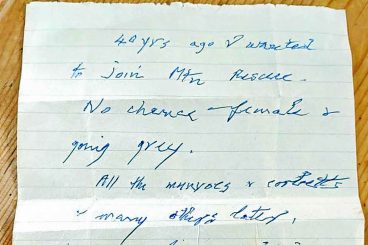 40 yrs ago I wanted
to join Mtn Rescue.
No chance – female &
going grey.
All the munroes & corbetts
& many others later,